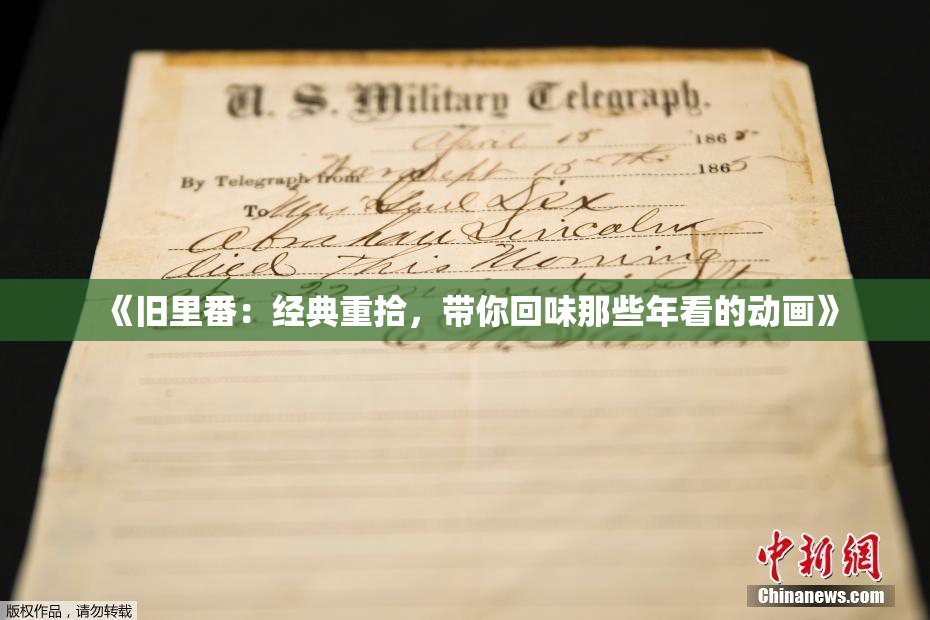 U. S. Military Telegraph.
April 15 1865
By Telegraph from War Dept 15th 1865
To Maj Genl Dix
Abraham Lincoln
died This Morning
at 22 minutes after
《旧里番：经典重拾，带你回味那些年看的动画》
E. M. Stanton
中新網
Chinanews.com
版权作品，请勿转载